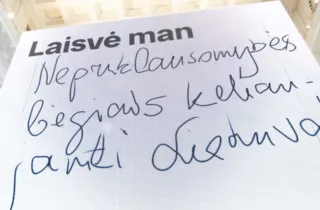 Laisvė man
Nepriklausomybės
bėgiais keliau-
janti Lietuva